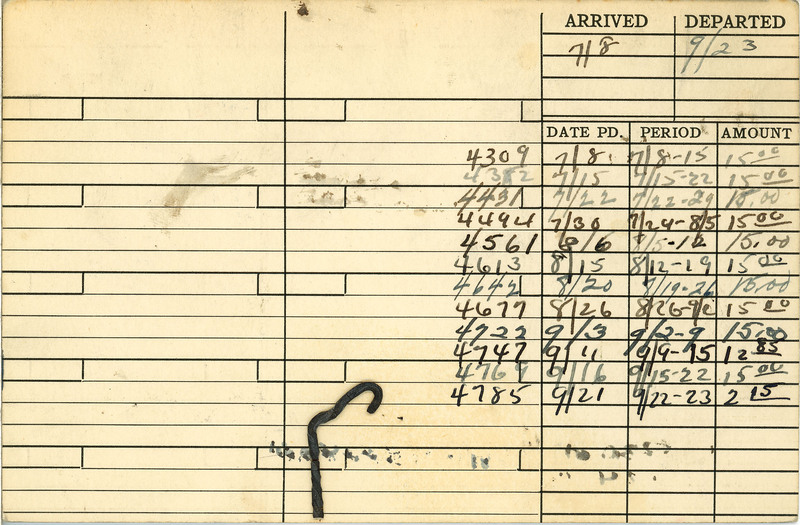 ARRIVED DEPARTED
7/8 9/23
DATE PD. PERIOD AMOUNT
4309 7/8 7/8-15 15.00
4352 7/15 7/15-22 15.00
4431 7/22 7/22-29 15.00
4494 7/30 7/29-8/5 15.00
4561 8/6 8/5-12 15.00
4613 8/15 8/12-19 15.00
4642 8/20 8/19-26 15.00
4677 8/26 8/26-9/2 15.00
4722 9/3 9/2-9 15.00
4747 9/11 9/9-15 12.85
4769 9/16 9/15-22 15.00
4785 9/21 9/22-23 2.15